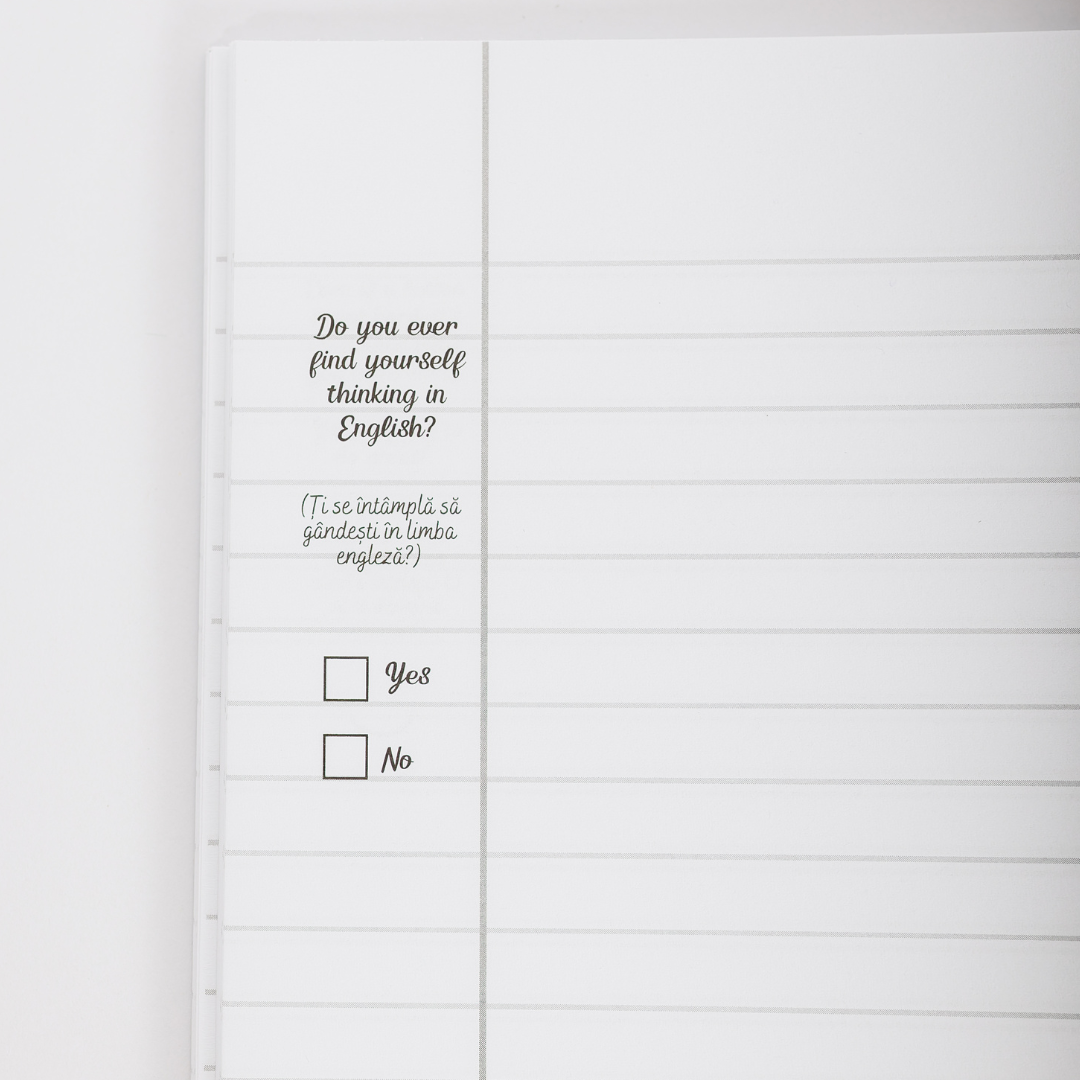 Do you ever
find yourself
thinking in
English?
(Ți se întâmplă să
gândești în limba
engleză?)
Yes
No